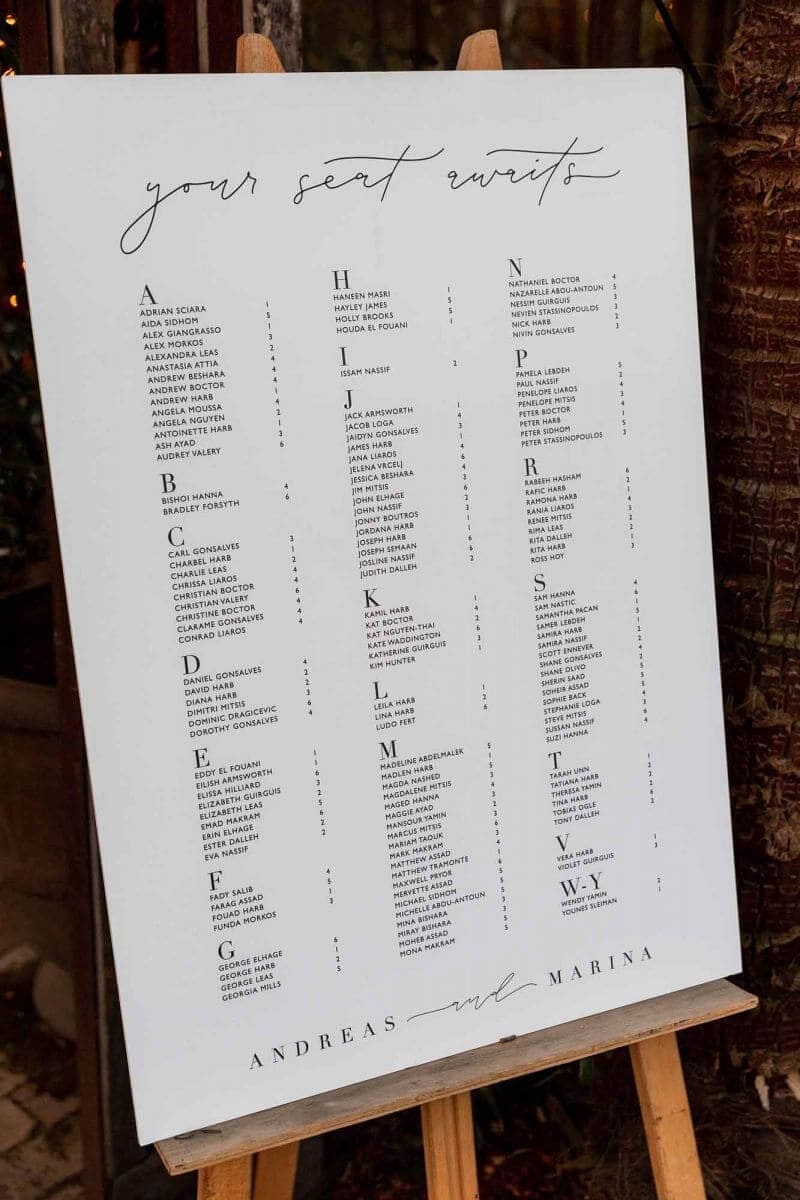 your seat awaits
A
ADRIAN SCIARA 1
AIDA SIDHOM 5
ALEX GIANGRASSO 1
ALEX MORKOS 3
ALEXANDRA LEAS 2
ANASTASIA ATTIA 4
ANDREW BESHARA 4
ANDREW BOCTOR 4
ANDREW HARB 1
ANGELA MOUSSA 4
ANGELA NGUYEN 2
ANTOINETTE HARB 1
ASH AYAD 3
AUDREY VALERY 6
B
BISHOI HANNA 4
BRADLEY FORSYTH 6
C
CARL GONSALVES 3
CHARBEL HARB 1
CHARLIE LEAS 2
CHRISSA LIAROS 4
CHRISTIAN BOCTOR 4
CHRISTIAN VALERY 6
CHRISTINE BOCTOR 4
CLARAME GONSALVES 4
CONRAD LIAROS 4
D
DANIEL GONSALVES 4
DAVID HARB 2
DIANA HARB 2
DIMITRI MITSIS 3
DOMINIC DRAGICEVIC 6
DOROTHY GONSALVES 4
E
EDDY EL FOUANI 1
EILISH ARMSWORTH 1
ELISSA HILLIARD 6
ELIZABETH GUIRGUIS 3
ELIZABETH LEAS 2
EMAD MAKRAM 5
ERIN ELHAGE 6
ESTER DALLEH 2
EVA NASSIF 2
F
FADY SALIB 4
FARAG ASSAD 5
FOUAD HARB 1
FUNDA MORKOS 3
G
GEORGE ELHAGE 6
GEORGE HARB 1
GEORGE LEAS 2
GEORGIA MILLS 5
H
HANEEN MASRI 1
HAYLEY JAMES 5
HOLLY BROOKS 5
HOUDA EL FOUANI 1
I
ISSAM NASSIF 2
J
JACK ARMSWORTH 1
JACOB LOGA 4
JAIDYN GONSALVES 3
JAMES HARB 1
JANA LIAROS 4
JELENA VRCELJ 6
JESSICA BESHARA 4
JIM MITSIS 3
JOHN ELHAGE 6
JOHN NASSIF 2
JONNY BOUTROS 3
JORDANA HARB 1
JOSEPH HARB 1
JOSEPH SEMAAN 6
JOSLINE NASSIF
JUDITH DALLEH 2
K
KAMIL HARB 1
KAT BOCTOR 4
KAT NGUYEN-THAI 2
KATE WADDINGTON 6
KATHERINE GUIRGUIS 3
KIM HUNTER 1
L
LEILA HARB 1
LINA HARB 2
LUDO FERT 6
M
MADELINE ABDELMALEK 5
MADLEN HARB 1
MAGDA NASHED 5
MAGDALENE MITSIS 3
MAGED HANNA 4
MAGGIE AYAD 3
MANSOUR YAMIN 2
MARCUS MITSIS 3
MARIAM TAOUK 6
MARK MAKRAM 3
MATTHEW ASSAD 4
MATTHEW TRAMONTE 1
MAXWELL PRYOR 6
MERVETTE ASSAD 5
MICHAEL SIDHOM 5
MICHELLE ABOU-ANTOUN 5
MINA BISHARA 3
MIRAY BISHARA 3
MOHEB ASSAD 5
MONA MAKRAM 5
N
NATHANIEL BOCTOR 4
NAZARELLE ABOU-ANTOUN 5
NESSIM GUIRGUIS 3
NEVIEN STASSINOPOULOS 3
NICK HARB 2
NIVIN GONSALVES 3
P
PAMELA LEBDEH 5
PAUL NASSIF 2
PENELOPE LIAROS 4
PENELOPE MITSIS 3
PETER BOCTOR 4
PETER HARB 1
PETER SIDHOM 5
PETER STASSINOPOULOS 3
R
RABEEH HASHAM 6
RAFIC HARB 2
RAMONA HARB 1
RANIA LIAROS 4
RENEE MITSIS 3
RIMA LEAS 2
RITA DALLEH 2
RITA HARB 1
ROSS HOY 3
S
SAM HANNA 4
SAM NASTIC 6
SAMANTHA PACAN 1
SAMER LEBDEH 5
SAMIRA HARB 1
SAMIRA NASSIF 2
SCOTT ENNEVER 2
SHANE GONSALVES 4
SHANE OLIVO 2
SHERIN SAAD 5
SOHEIR ASSAD 5
SOPHIE BACK
STEPHANIE LOGA 4
STEVE MITSIS 3
SUSSAN NASSIF
SUZI HANNA 4
T
TARAH UNN 1
TATIANA HARB 2
THERESA YAMIN 2
TINA HARB 2
TOBIAS OGLE 6
TONY DALLEH 2
V
VERA HARB 1
VIOLET GUIRGUIS 3
W-Y
WENDY YAMIN 2
YOUNES SLEIMAN 1
ANDREAS and MARINA